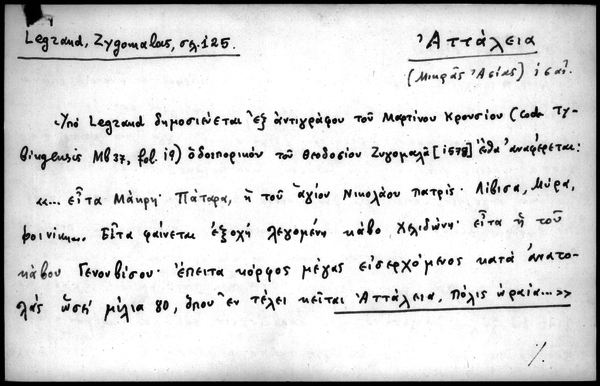 Legrand, Zygomalas, σελ. 125.
Ἀττάλεια
(Μικρᾶς Ἀσίας)
Ὑπό Legrand δημοσιεύεται ἐξ ἀντιγράφου τοῦ Μαρτίνου Κρουσίου (code Ty-
bingensis Mb 37, fol. 19) ὁδοιπορικόν τοῦ Θεοδοσίου Ζυγομαλᾶ [1578] ἔνθα ἀναφέρεται:
«... εἶτα Μάκρη· Πάταρα, ἡ τοῦ ἁγίου Νικολάου πατρίς· Λίβισα, Μύρα,
Φοινίκη... Εἶτα φαίνεται ἐξοχή λεγομένη κάβο Χελιδώνη· εἶτα ἡ τοῦ
κάβου Γενουβίσου· ἔπειτα κόρφος μέγας εἰσερχόμενος κατά ἀνατο-
λάς ὡσεί μίλια 80, ὅπου ἐν τέλει κεῖται Ἀττάλεια, πόλις ὡραία...»